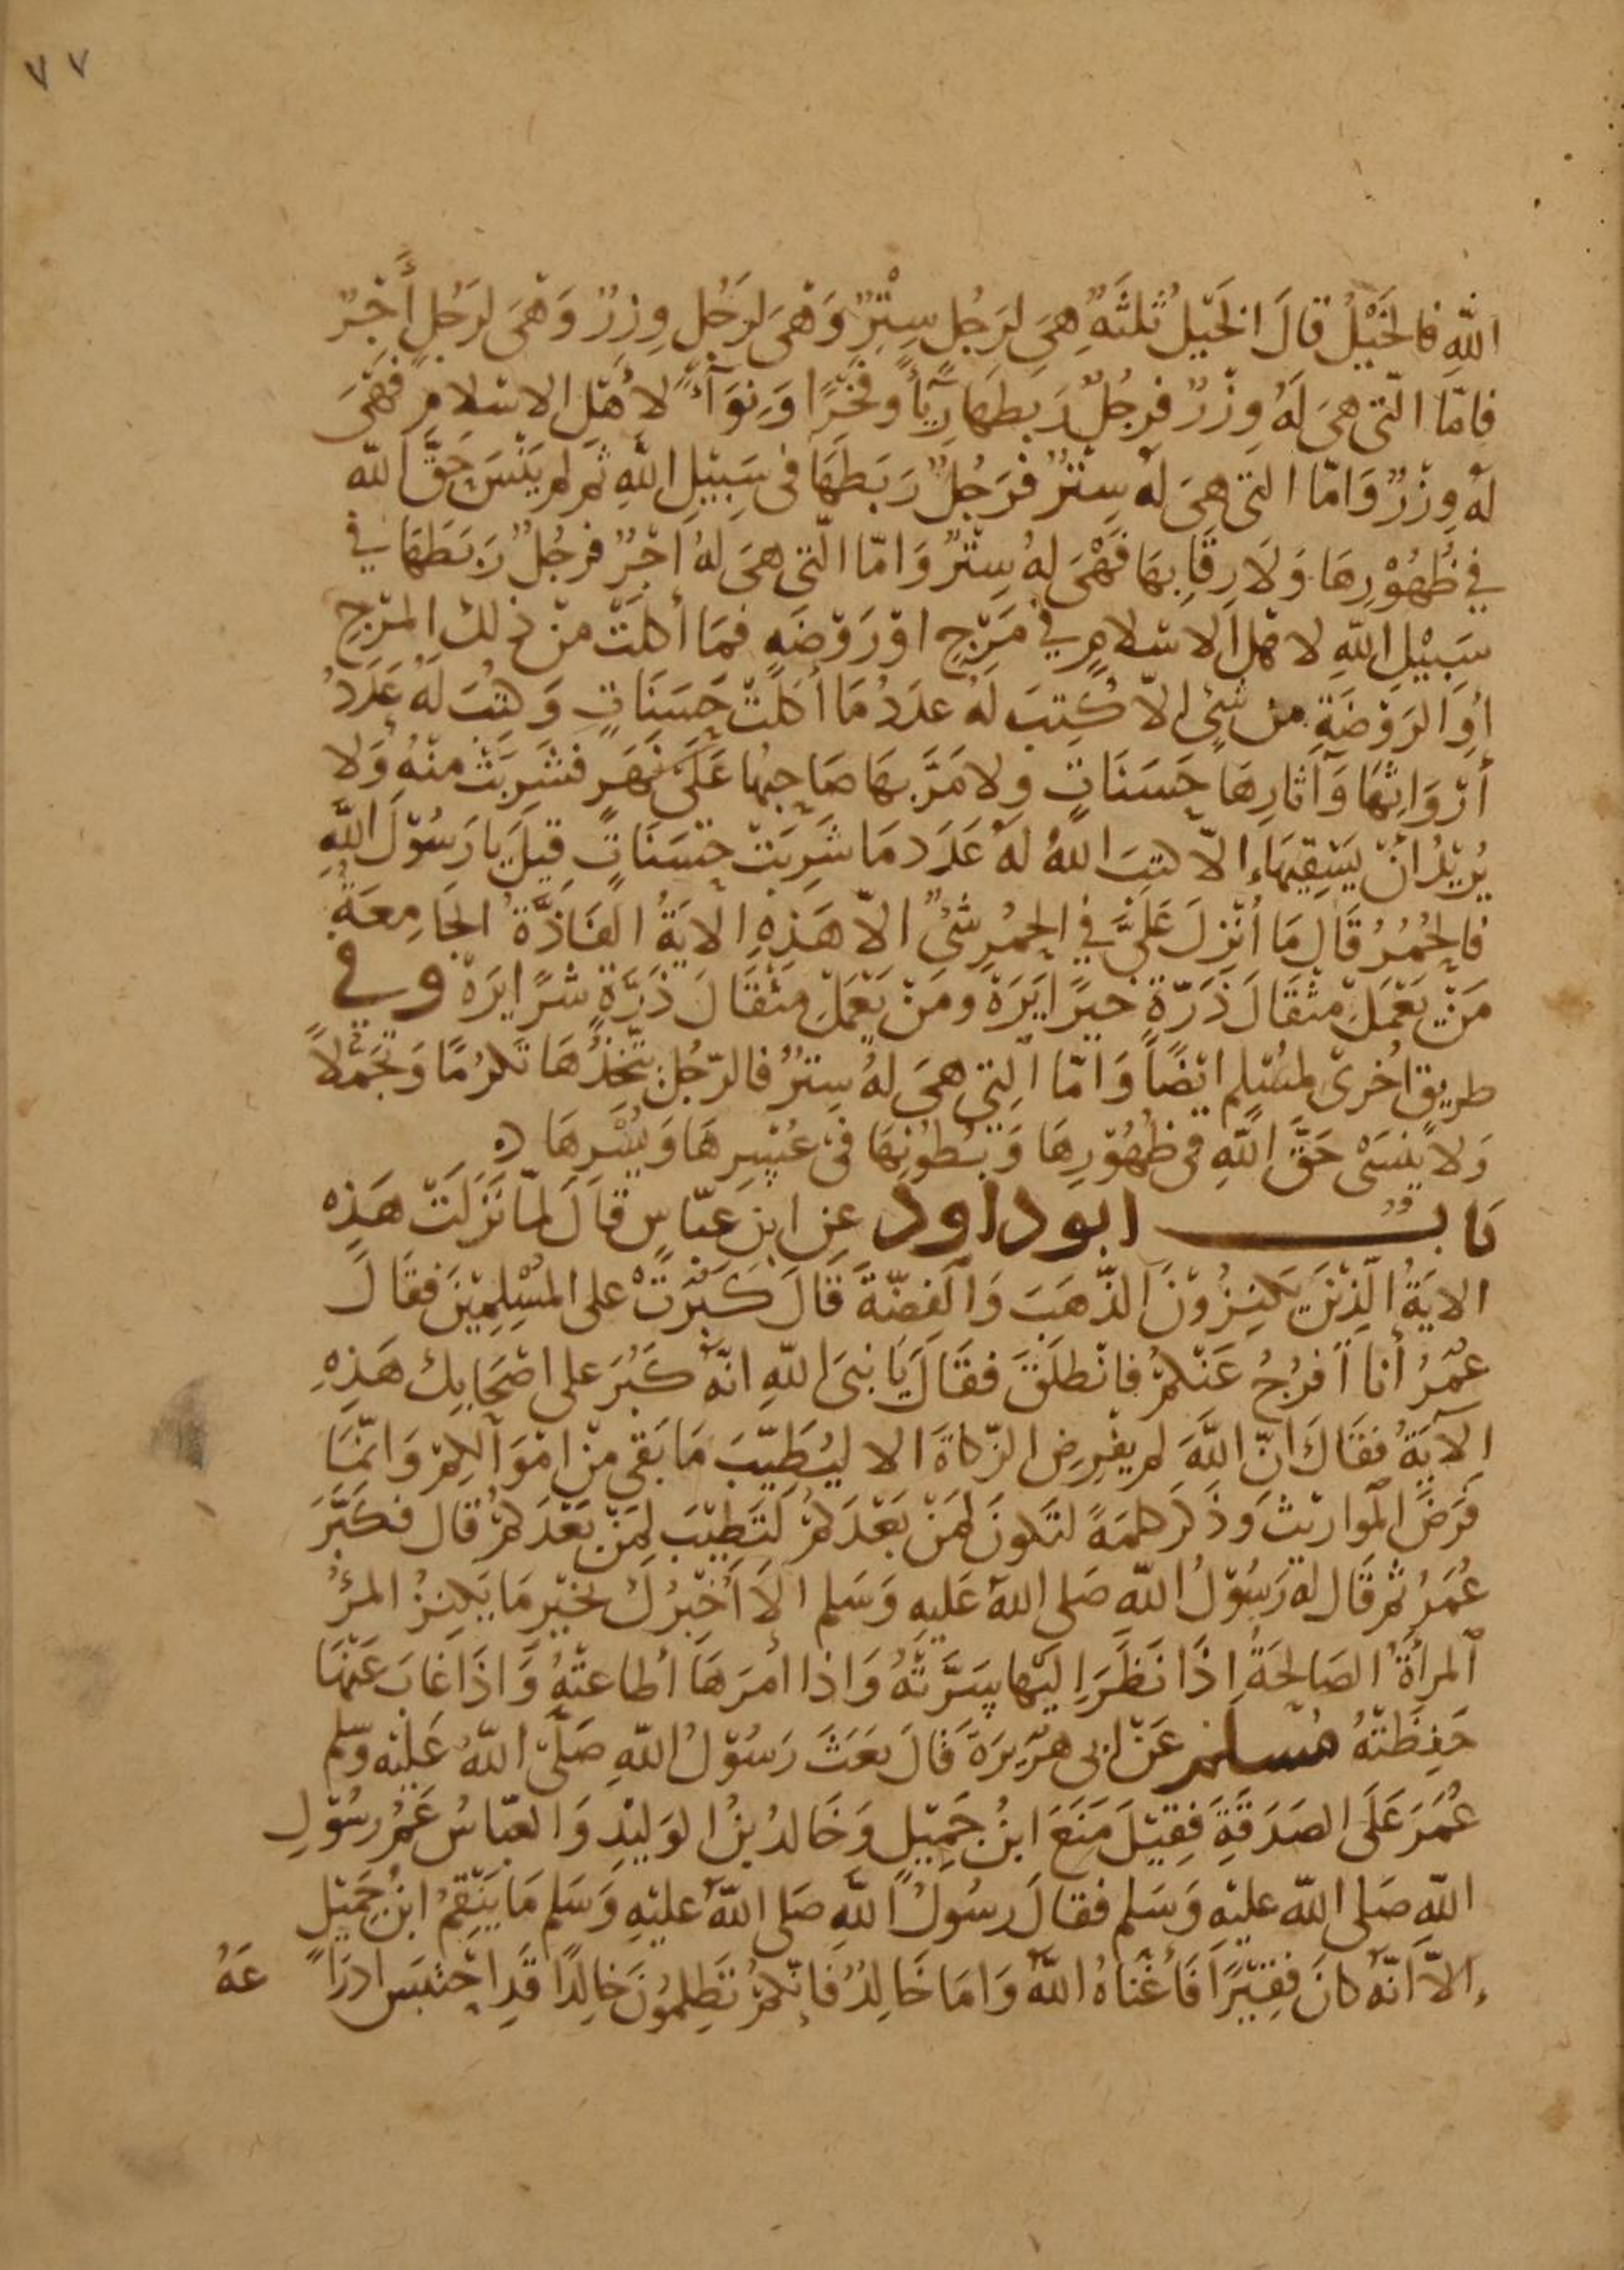 ٧٧
اللهِ فالخَيْلُ قالَ الخَيْلُ ثلثَةٌ هِىَ لِرَجُلٍ سِتْرٌ وَهْىَ لرَجُلٍ وِزْرٌ وَهْىَ لرَجُلٍ أَجْرٌ
فامّا الّتى هىَ لَهُ وِزْرٌ فرجُلٌ رَبطَهَا رِيَّأً وفَخْرًا وَنِوَآءً لاهْل الاسْلامِ فَهْىَ
لهُ وِزْرٌ وَامّا التى هىَ لهُ سِتْرٌ فرَجُلٌ رَبَطَهَا فى سَبِيْلِ اللهِ ثمّ لم يَنْسَ حَقَّ الله
في ظُهُوْرِهَا وَلَا رِقَابِهَا فَهْىَ لهُ سِتْرٌ وَامّا الّتى هىَ لهُ اجْرٌ فرجُلٌ رَبَطَهَا في
سَبِيْلِ اللهِ لاهْلِ الاسْلامِ في مَرْجٍ اوْ رَوْضَهٍ فمَا أكلَتْ منْ ذلكَ المرْجِ
أوِ الرَوْضَةِ من شىْءٍ الاّ كُتِبَ لَهُ عدَدُ مَا أكلَتْ حَسَنَاتٍ وَكتِبَ لَهُ عَدَدُ
أرْوَاثِهَا وَآثارِهَا حَسَنَاتٍ ولا مَرَّ بهَا صَاحِبُها عَلَى نَهَرٍ فشَرِبَتْ منْهُ وَلا
يُريْدُ انْ يَسْقِيَهَاء الاّ كتبَ اللهُ لهُ عَدَدَ مَا شَرِبَتْ حَسَنَاتٍ قِيلَ يَا رَسُوْلَ اللهِ
فالحُمُرُ قَالَ مَا اُنْزِلَ عَلَىَّ في الحمُرِ شىْءٌ الاّ هَذِهِ الايَةُ الفَاذَّةُ الجَامِعَةُ
مَنْ يَعْمَلْ مثْقَالَ ذَرّةٍ خيرًا يَرَهْ ومَنْ يَعْمَلْ مِثْقَالَ ذَرَّةٍ شَرًا يَرَهْ وفي
طريق اُخرىْ لمسْلمٍ ايْضاً وَامّا الّتِي هىَ لهُ سِتْرٌ فالرّجُلُ يتّخِذُهَا تكرُمًا وَتَجَمُّلاً
وَلا يَنْسَىْ حَقَّ اللهِ في ظُهُوْرِهَا وَبُطُوْنِهَا فى عُسْرِهَا وَيُسْرِهَا
بَابٌ ابو داود عنِ ابنِ عبّاسٍ قَالَ لمّا نَزَلَتْ هَذِهِ
الايَةُ الّذِيْنَ يَكنِزُوْنَ الذّهَبَ وَالفضّةَ قَالَ كَبُرَتْ على المسْلِمِيْنَ فقَالَ
عُمَرُ أنا اُفرِّجُ عَنْكمْ فانْطلَقَ فقَالَ يَا نبىَ اللهِ انّهُ كَبُرَ على اصْحَابِكَ هَذِهِ
الآيَةُ فقَالَ انّ اللهَ لم يفْرِضِ الزّكاةَ الا ليُطَيِّبَ مَا بَقىَ منْ امْوَالِكمْ وَانّمَا
فرَضَ الموَاريْثَ وَذَكَرَ كلمَةً لتَكونَ لمَنْ بَعْدَكمْ لتَطِيْبَ لمَنْ بَعْدَكمْ قال فكَبّرَ
عُمَرُ ثمّ قَال لهُ رَسُوْلُ الله صَلى اللهُ عَليهِ وَسَلم الاَ اُخْبِرُكَ بخَيْرِ مَا يَكنِزُ المرْءُ
المرأةُ الصَالحَةُ إذَا نَظَرَ إليْها سَرَّتْهُ وَاذا امَرَهَا أطاعتْهُ وَاذَا غَابَ عَنْهَا
حَفِظَتْهُ مسلم عَنْ ابى هرَيرَةَ قَالَ بَعَثَ رَسُوْلُ اللهِ صَلّى اللهُ عَليْهِ وسّلم
عُمَرَ عَلَى الصَدَقَةِ فِقِيْلَ مَنَعَ ابنُ جَمِيْلٍ وَخَالدُ بْنُ الوَلِيْدِ وَالعبّاسُ عَمُّ رسُوْلِ
اللهِ صَلى الله عليْهِ وَسَلم فقالَ رسُولُ اللهِ صَلى اللهُ عليْهِ وَسَلم مَا يَنْقِمُ ابنُ جَمِيْلٍ
إلاّ انّهُ كانَ فِقِيْرًا فَأغْنَاهُ اللهُ وَامَا خَالِدٌ فَإنّكمْ تَظلِمُونَ خَالِدًا قَدِ احْتبَسَ ادرَا عَهُ